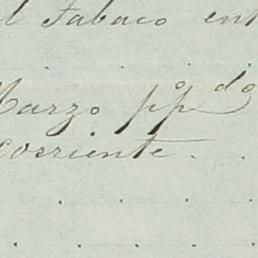 el Tabaco ent
Marzo pp.º d.º
corriente.